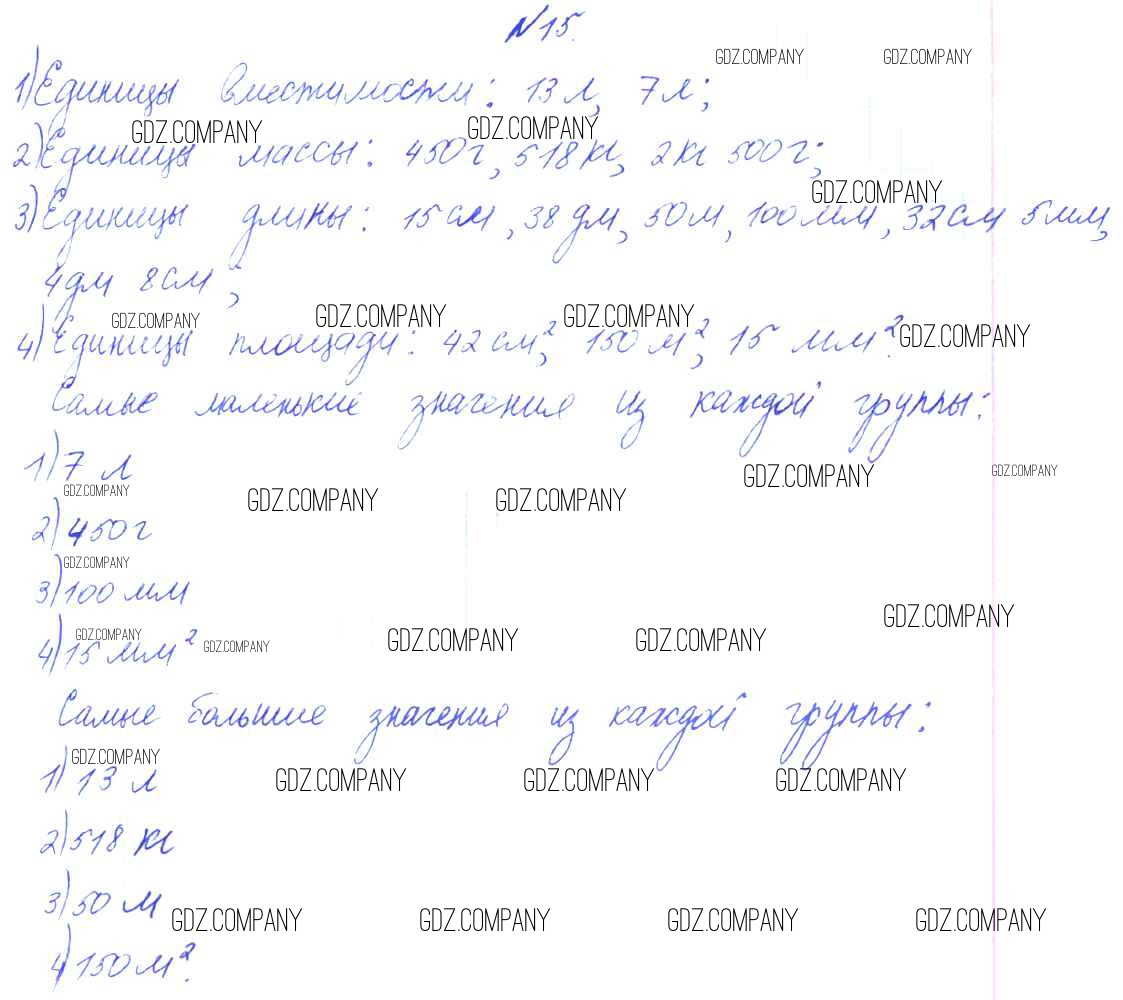 N15.
GDZ.COMPANY GDZ.COMPANY
1) Единицы вместимости: 13 л, 7 л;
GDZ.COMPANY GDZ.COMPANY
2) Единицы массы: 450 г, 518 кг, 2 кг 500 г;
GDZ.COMPANY
3) Единицы длины: 15 см, 38 дм, 50 м, 100 мм, 32 см 5 мм,
4 дм 8 см;
GDZ.COMPANY GDZ.COMPANY GDZ.COMPANY GDZ.COMPANY
4) Единицы площади: 42 см², 150 м², 15 мм².
Самые маленькие значения из каждой группы:
1) 7 л
GDZ.COMPANY GDZ.COMPANY
GDZ.COMPANY GDZ.COMPANY GDZ.COMPANY
2) 450 г
GDZ.COMPANY
3) 100 мм
GDZ.COMPANY
GDZ.COMPANY GDZ.COMPANY GDZ.COMPANY GDZ.COMPANY
4) 15 мм²
Самые большие значения из каждой группы:
GDZ.COMPANY
1) 13 л
GDZ.COMPANY GDZ.COMPANY GDZ.COMPANY
2) 518 кг
3) 50 м
GDZ.COMPANY GDZ.COMPANY GDZ.COMPANY GDZ.COMPANY
4) 150 м².